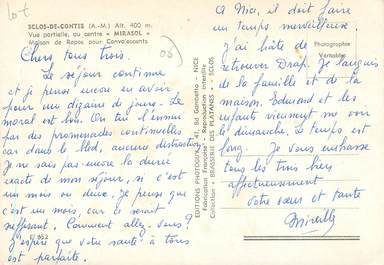 Lot
SCLOS-DE-CONTES (A.-M.) Alt. 400 m.
Vue partielle, au centre « MIRASOL »
Maison de Repos pour Convalescents
(06)
Chers tous trois.
Le séjour continue
et je pense encore en avoir
pour une dizaine de jours. Le
moral est bon. On tue l'ennui
par des promenades continuelles
car dans le bled, aucune distraction
Je ne sais pas encore la durée
exacte de mon séjour, si c'est
un mois ou deux. Je pense que
c'est un mois, car ce serait
suffisant. Comment allez-vous?
J'espère que votre santé à tous
est parfaite.
E 852
EDITIONS PHOTOGUY, 47, Bd Gambetta - NICE
Fabrication Française - Reproduction interdite
Collection « BRASSERIE DES PLATANES » - SCLOS
Photographie
Véritable
A Nice, il doit faire
un temps merveilleux.
J'ai hâte de
retrouver Drap. Je languis
de la famille et de la
maison. Edmond et les
enfants viennent me voir
le dimanche. Le temps est
long. Je vous embrasse
tous les trois bien
affectueusement
Votre sœur et tante
Mireille